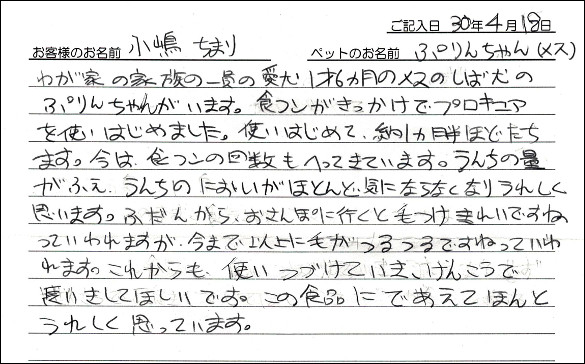 ご記入日 30年4月18日
お客様のお名前 小嶋 ちまり ペットのお名前 ぷりんちゃん(メス)
わが家の家族の一員の愛犬 1才6ヵ月のメスのしば犬の
ぷりんちゃんがいます。食フンがきっかけでプロキュア
を使いはじめました。使いはじめて、約1ヵ月半ほどたち
ます。今は、食フンの回数もへってきています。うんちの量
がふえ、うんちのにおいがほとんど気にならなくなりうれしく
思います。ふだんから、おさんぽに行くと毛つけきれいですね
っていわれますが、今まで以上に毛がつるつるですねっていわ
れます。これからも、使いつづけていき、けんこうで
長いきしてほしいです。この食品にであえてほんと
うれしく思っています。